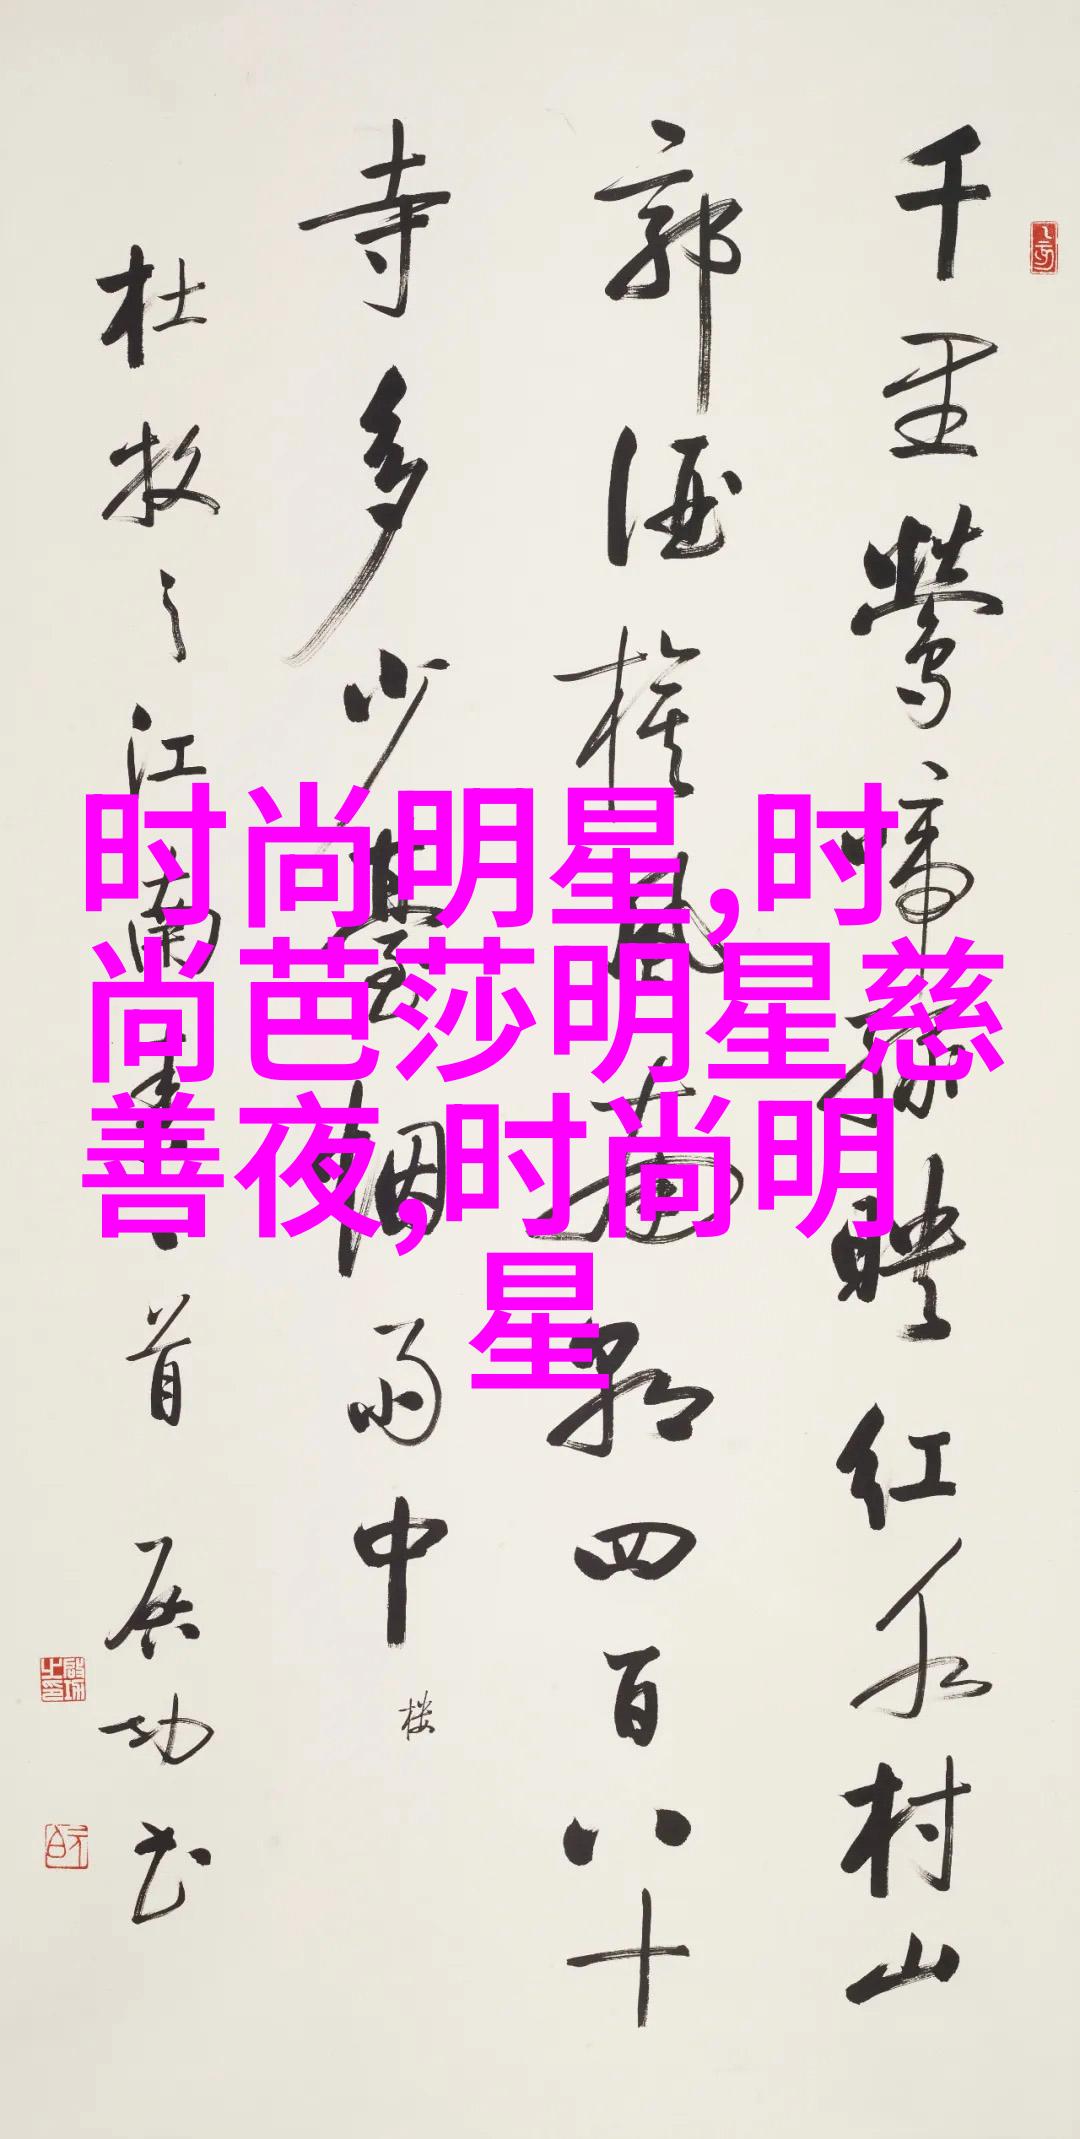 千里鶯啼綠映紅水村山
郭酒旗風南朝四百八十
寺多少臺烟雨中
楼
杜牧之江南春一首 启功书
时尚明星,时
尚芭莎明星慈
善夜,时尚明
星